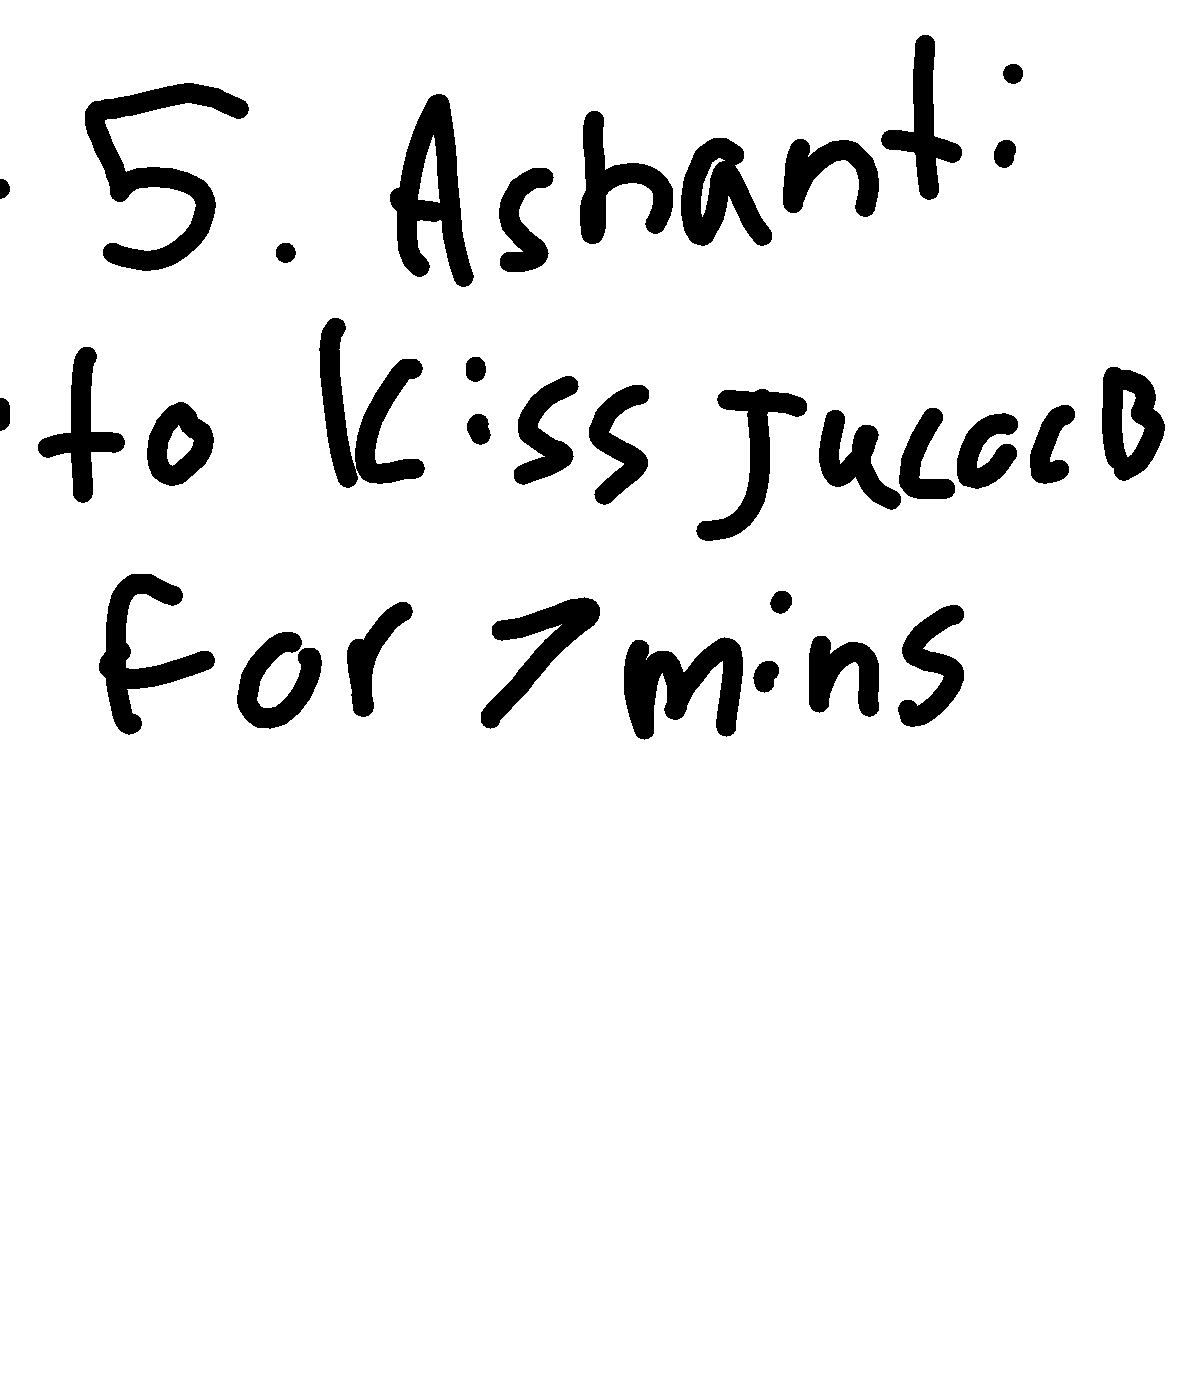 5. Ashanti
to kiss JucocB
for 7 mins